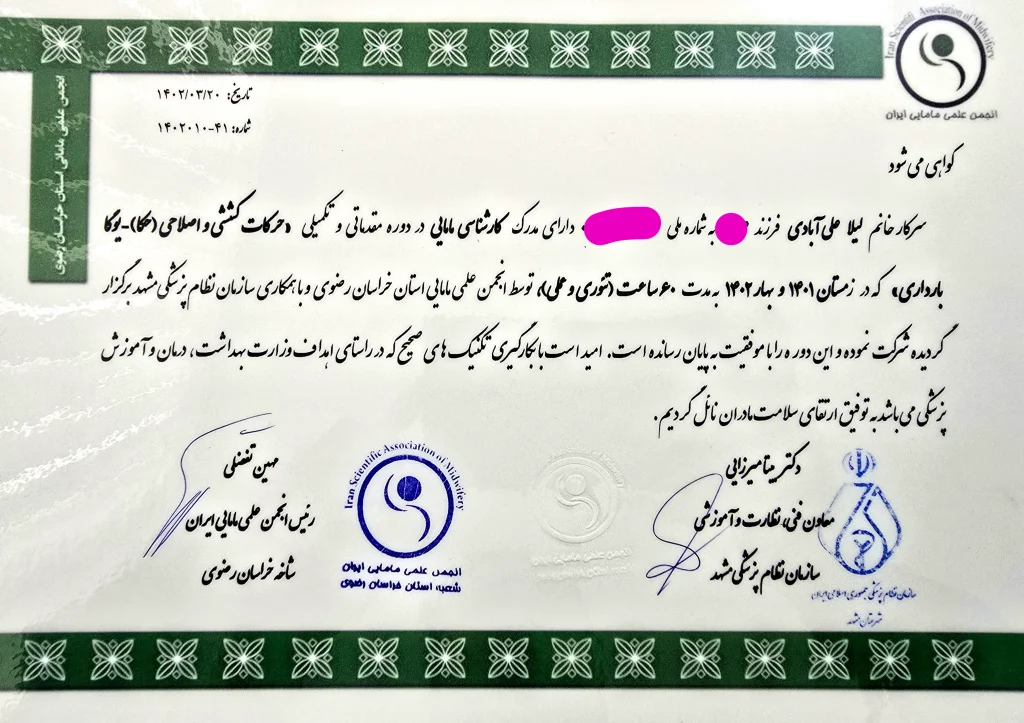 Iran Scientifi Association of Midwifery
انجمن علمی مامایی ایران
انجمن علمی مامائی استان خراسان رضوی
تاریخ: ۱۴۰۲/۰۳/۲۰
شماره: ۴۱-۱۴۰۲۰۱۰
گواهی می شود
سرکار خانم لیلا علی آبادی فرزند به شماره ملی دارای مدرک کارشناسی مامایی در دوره مقدماتی و تکمیلی «حرکات کششی و اصلاحی (حکا)-یوگا
بارداری» که در زمستان ۱۴۰۱ و بهار ۱۴۰۲ به مدت ۶۰ ساعت (تئوری و عملی)، توسط انجمن علمی مامایی استان خراسان رضوی و با همکاری سازمان نظام پزشکی مشهد برگزار
گردیده شرکت نموده و این دوره را با موفقیت به پایان رسانده است. امید است با بکارگیری تکنیک های صحیح که در راستای اهداف وزارت بهداشت، درمان و آموزش
پزشکی می باشد به توفیق ارتقای سلامت مادران نائل گردیم.
دکتر بیتا میرزایی
معاون فنی، نظارت و آموزشی
سازمان نظام پزشکی مشهد
سازمان نظام پزشکی جمهوری اسلامی ایران
شهرستان مشهد
Iran Scientific Association of Midwifery
انجمن علمی مامایی ایران
شعبه استان خراسان رضوی
مهین تفضلی
رئیس انجمن علمی مامایی ایران
شاخه خراسان رضوی